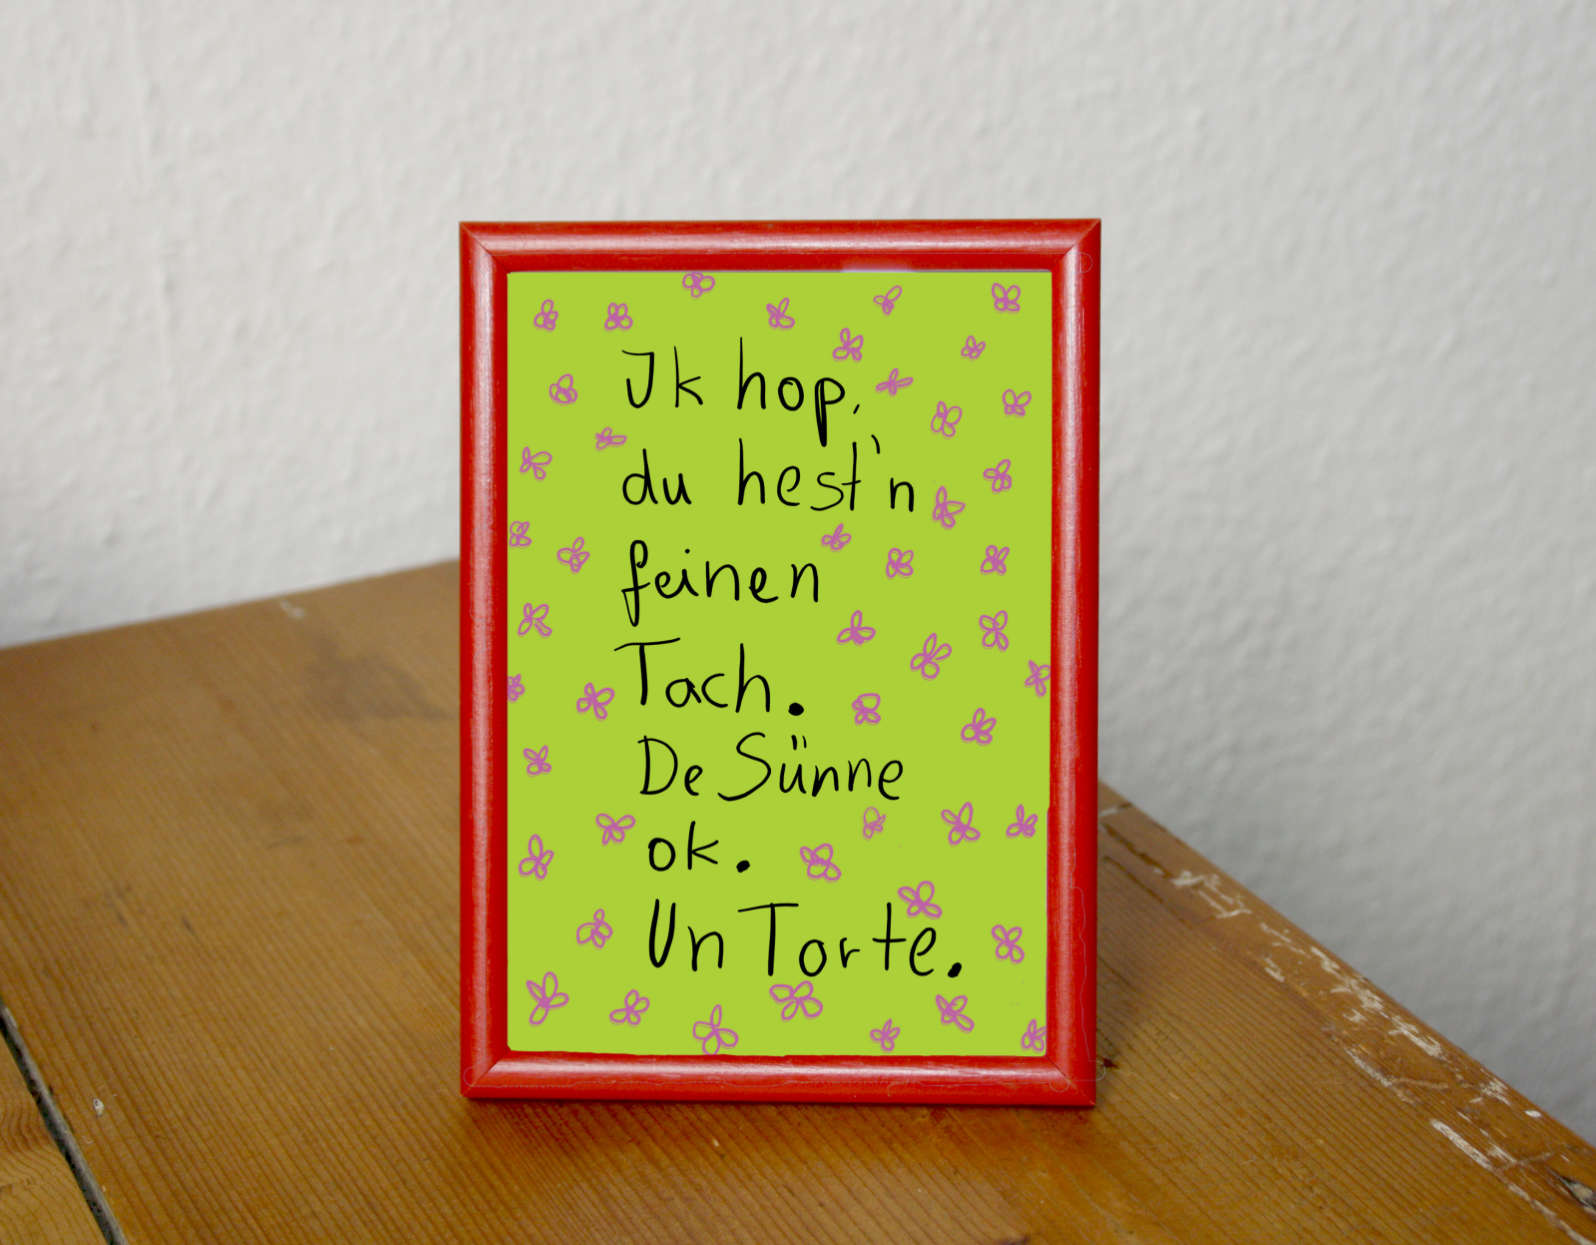 Ik hop,
du hest'n
feinen
Tach.
De Sünne
ok.
Un Torte.